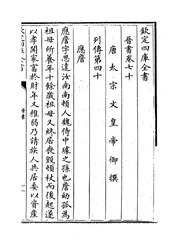 欽定四庫全書
晉書卷七十
唐太宗文皇帝御撰
列傳第四十
應詹
應詹字思遠汝南南頓人魏侍中璩之孫也詹幼孤為
祖母所養年十餘歲祖母又終居喪毀頓杖而後起遂
以孝聞家富於財年又稚弱乃請族人共居委以資產
晉書